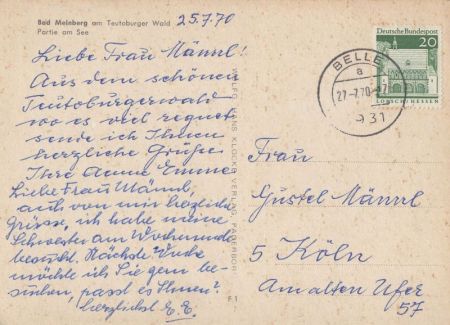 Bad Meinberg am Teutoburger Wald
Partie am See
25.7.70
Liebe Frau Männl!
Aus dem schönen
Teutoburgerwald
wo es viel regnet
sende ich Ihnen
herzliche Grüße
Ihre Anne Emme
Liebe Frau Männl,
auch von mir herzliche
Grüsse, ich habe meine
Schwester am Wochenende
besucht. Nächste Woche
möchte ich Sie gern be-
suchen, passt es Ihnen?
herzlichst E. E.
F1
Deutsche Bundespost
20
LORSCH/HESSEN
BELLE
a
27.-7.70.-7
931
Frau
Gustel Männl
5 Köln
Am alten Ufer
57